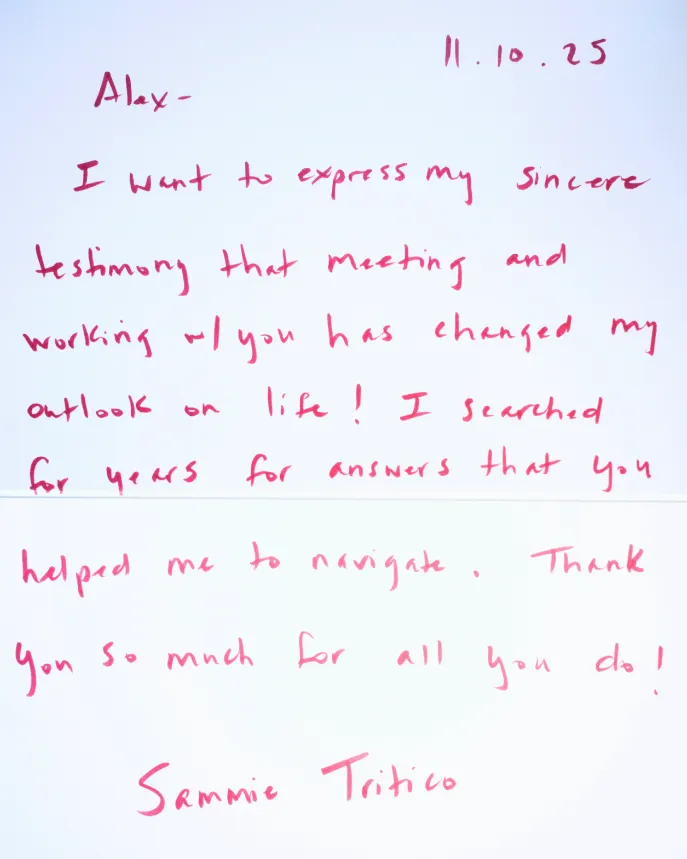 11.10.25
Alex-
I want to express my sincere
testimony that meeting and
working w/ you has changed my
outlook on life! I searched
for years for answers that you
helped me to navigate. Thank
you so much for all you do!
Sammie Tritico